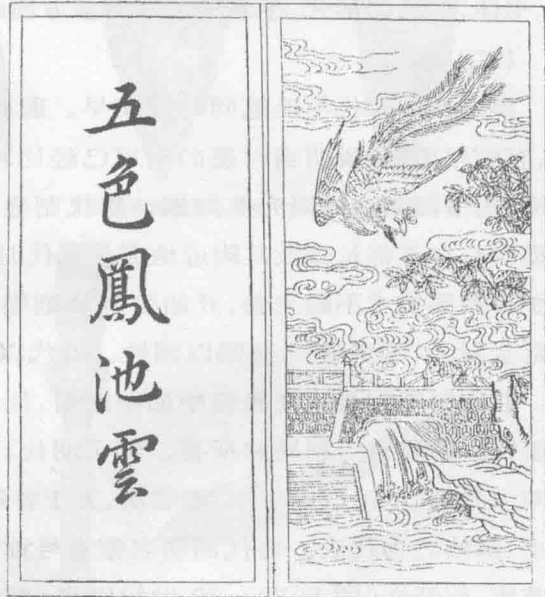 五色鳳池雲